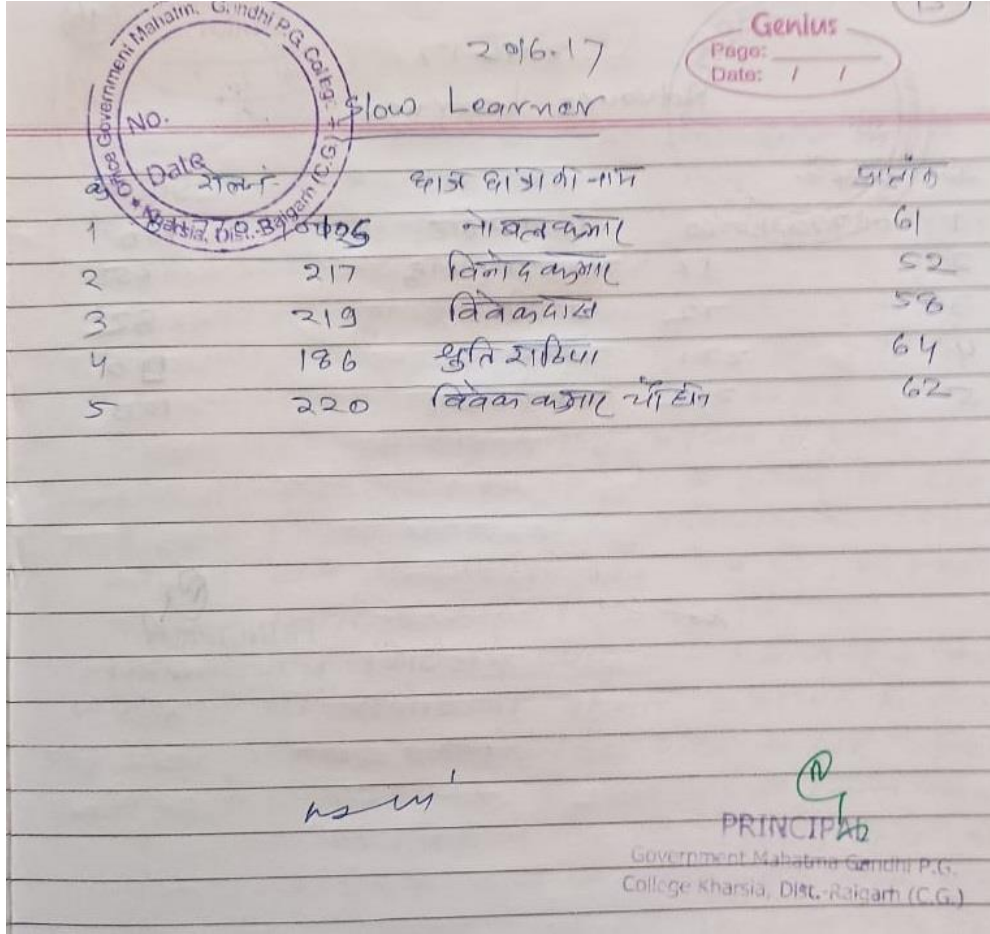 Office Government Mahatm. Gandhi P.G. College
Kharsia, Dist.-Raigarh (C.G.)
No.
Date
Genius
Page:
Date: / /
Slow Learner
रोल नं. छात्र छात्रा का नाम प्राप्तांक
1 कुमार 61
2 217 विनोद कुमार 52
3 219 विवेक दास 58
4 186 श्रुति राठिया 64
5 220 विवेक कुमार चौहान 62
PRINCIPAL
Government Mahatma Gandhi P.G.
College Kharsia, Dist.-Raigarh (C.G.)